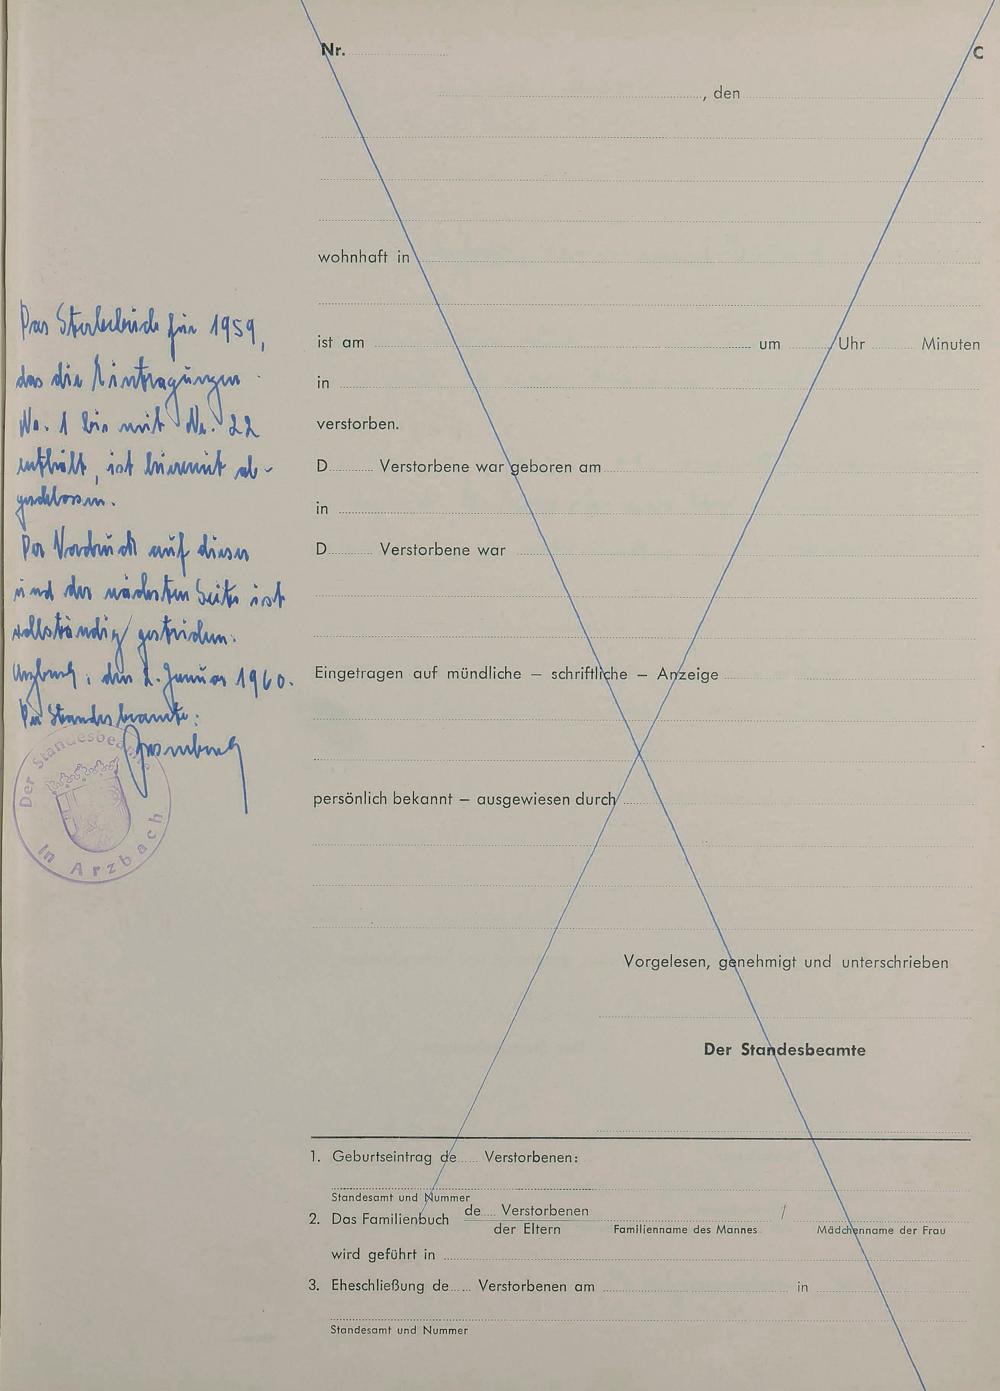 Nr.
C
, den
wohnhaft in
ist am um Uhr Minuten
in
verstorben.
D Verstorbene war geboren am
in
D Verstorbene war
Eingetragen auf mündliche – schriftliche – Anzeige
persönlich bekannt – ausgewiesen durch
Vorgelesen, genehmigt und unterschrieben
Der Standesbeamte
1. Geburtseintrag de Verstorbenen:
Standesamt und Nummer
2. Das Familienbuch de Verstorbenen /
der Eltern Familienname des Mannes Mädchenname der Frau
wird geführt in
3. Eheschließung de Verstorbenen am in
Standesamt und Nummer
Das Sterbebuch für 1959,
das die Eintragungen
Nr. 1 bis mit Nr. 22
enthält, ist hiermit ab-
geschlossen.
Der Vordruck auf dieser
und der nächsten Seite ist
vollständig gestrichen.
Arzbach, den 2. Januar 1960.
Der Standesbeamte:
Der Standesbeamte
In Arzbach